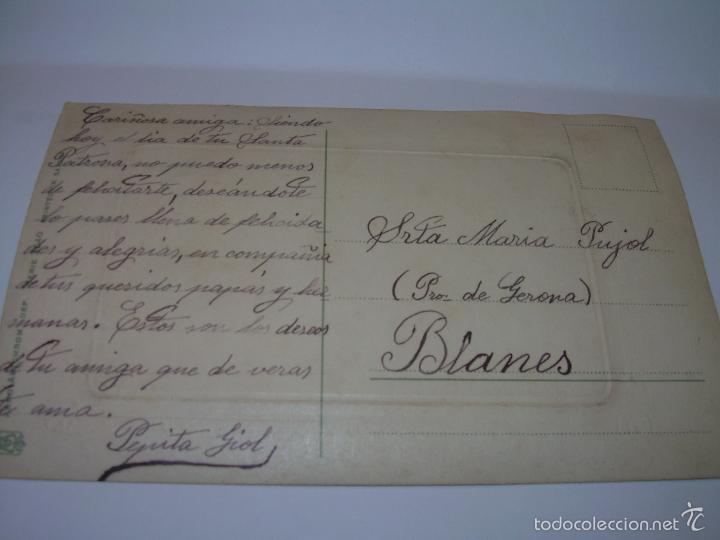 Cariñosa amiga: Siendo
hoy el dia de tu Santa
Patrona, no puedo menos
de felicitarte, deseándote
lo pases llena de felicida-
des y alegrias, en compañia
de tus queridos papás y her
manas. Estos son los deseos
de tu amiga que de veras
te ama.
Pepita Giol
Srta Maria Pujol
(Pro. de Gerona)
Blanes
todocoleccion.net